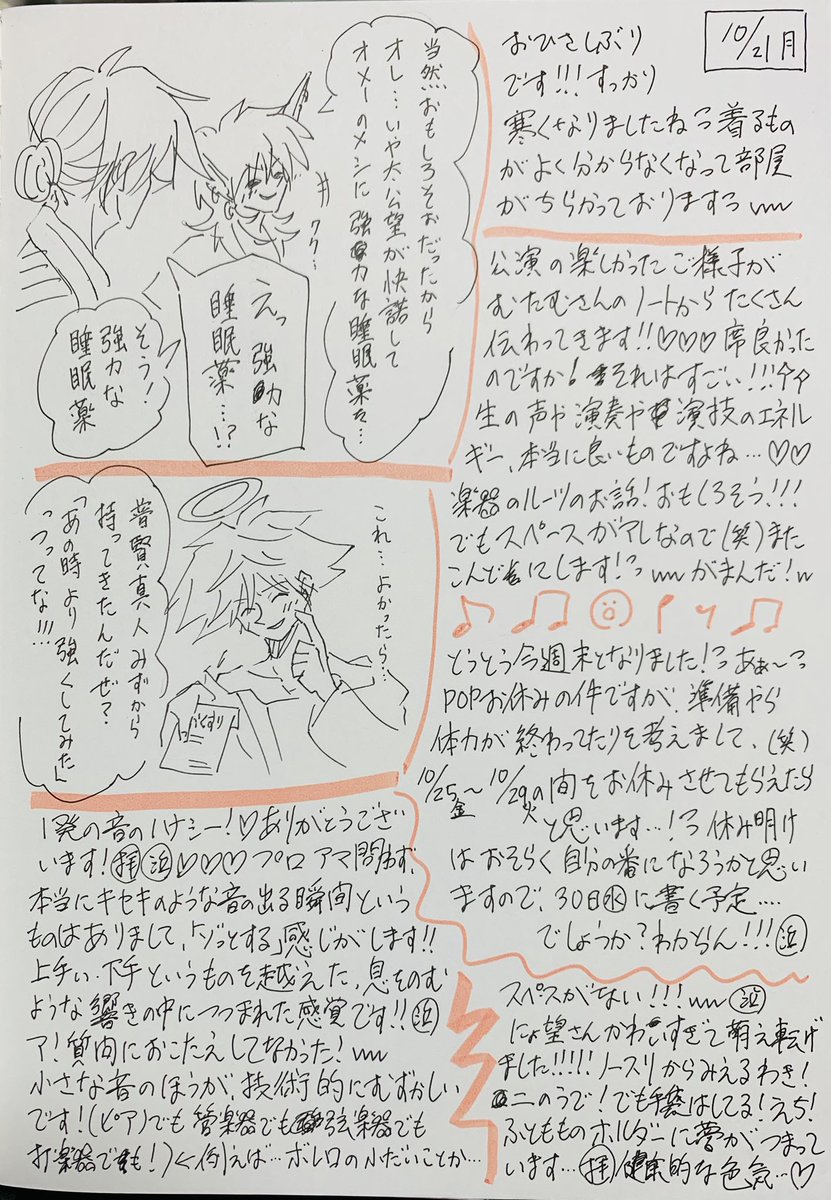 10/21月
おひさしぶり
です!!!すっかり
寒くなりましたねっ着るもの
がよく分からなくなって部屋
がちらかっておりますっ
公演の楽しかったご様子が
むたむさんのノートからたくさん
伝わってきます!!♡♡♡席良かった
のですか!それはすごい!!!
生の声や演奏や演技のエネル
ギー、本当に良いものですよね…♡♡
楽器のルーツのお話!おもしろそう!!!
でもスペースがアレなので(笑)また
こんどにします!っ がまんだ!
とうとう今週末となりました!っあぁ〜っ
POPお休みの件ですが、準備やら
体力が終わってたりを考えまして、(笑)
10/25金〜10/29火の間をお休みさせてもらえたら
と思います…!?っ休み明け
はおそらく自分の番になろうかと思い
ますので、30日水に書く予定….
でしょうか?わからん!!!
スペースがない!!!
にょ望さんかわいすぎて萌え転げ
ました!!!!!ノースリからみえるわき!
二のうで!でも手袋はしてる!えち!
ふともものホルダーに夢がつまって
います…拝 健康的な色気…♡
当然おもしろそおだったから
オレ…いや太公望が快諾して
オメーのメシに強力な睡眠薬を…
クク…
えっ強力な
睡眠薬…!?
そう!
強力な
睡眠薬
これ…よかったら…
おくすり
普賢真人みずから
持ってきたんだぜ?
「あの時より強くしてみた」
っつってな!!!
1発の音のハナシー!♡ありがとうござ
います!拝 ♡♡♡プロアマ問わず、
本当にキセキのような音の出る瞬間という
ものはありまして、「ゾッとする」感じがします!!
上手い下手というものを越えた、息をのむ
ような響きの中につつまれた感覚です!!
ア!質問におこたえしてなかった!
小さな音のほうが、技術的にむずかしい
です!(ピアノでも管楽器でも弦楽器でも
打楽器でも!)<例えば…ボレロの小だいことか…